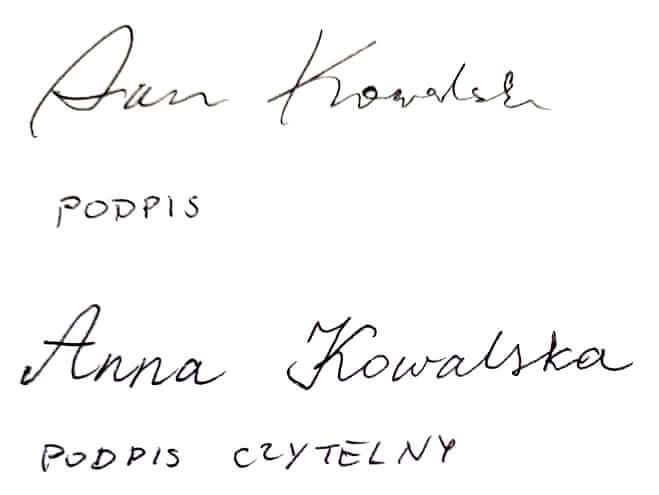 Jan Kowalski
PODPIS
Anna Kowalska
PODPIS CZYTELNY